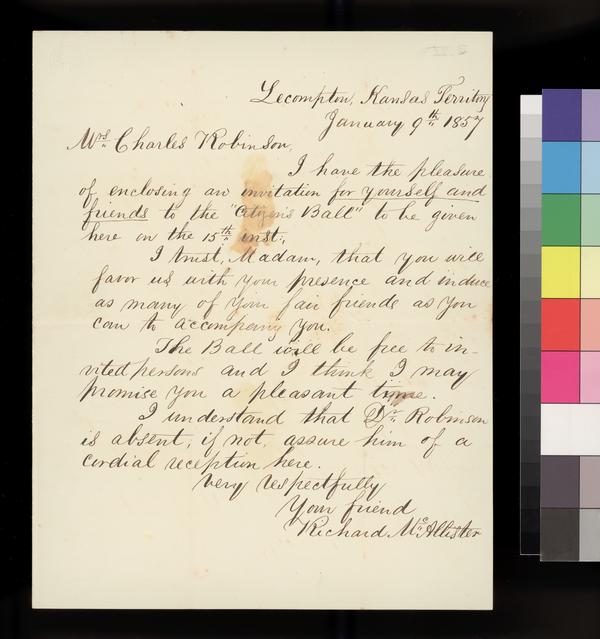 Lecompton, Kansas Territory
January 9th 1857
Mrs Charles Robinson,
I have the pleasure
of enclosing an invitation for yourself and
friends to the "Citizen's Ball" to be given
here on the 15th inst.,
I trust, Madam, that you will
favor us with your presence and induce
as many of your fair friends as you
can to accompany you.
The Ball will be free to in-
vited persons and I think I may
promise you a pleasant time.
I understand that Dr. Robinson
is absent; if not, assure him of a
cordial reception here.
Very respectfully
Your friend
Richard McAllister